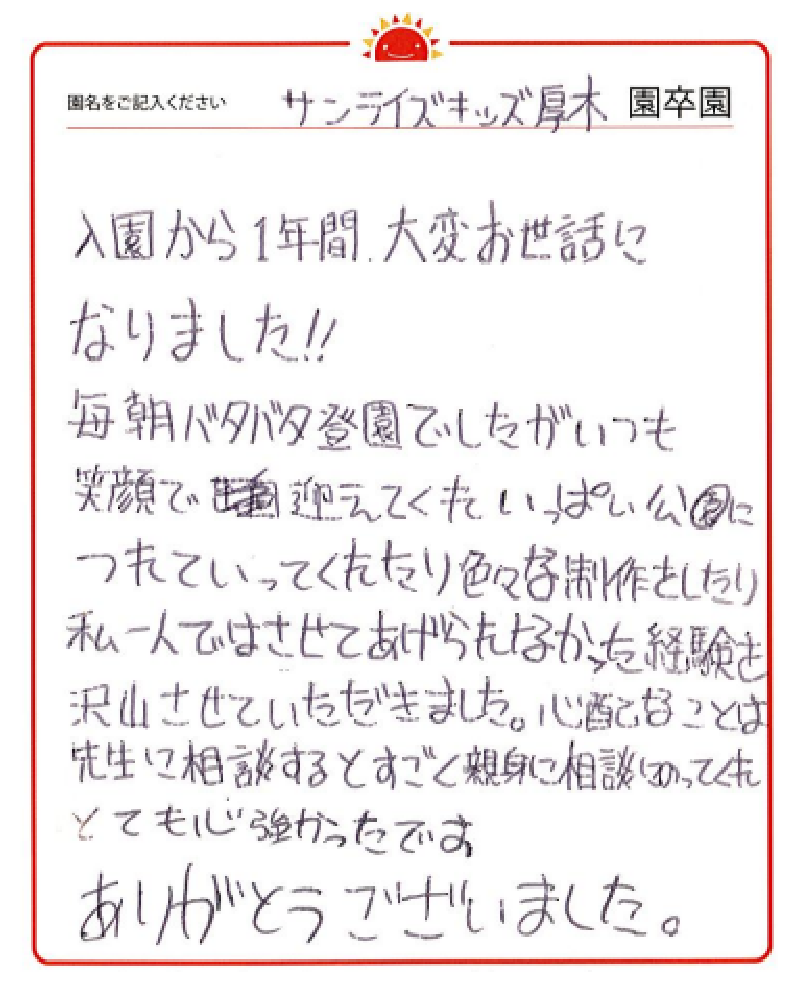 園名をご記入ください サンライズキッズ厚木 園卒園
入園から1年間、大変お世話に
なりました!!
毎朝バタバタ登園でしたがいつも
笑顔で 迎えてくれ いっぱい公園に
つれていってくれたり色々な制作をしたり
私一人ではさせてあげられなかった経験を
沢山させていただきました。心配なことは
先生に相談するとすごく親身に相談にのってくれ
とても心強かったです
ありがとうございました。